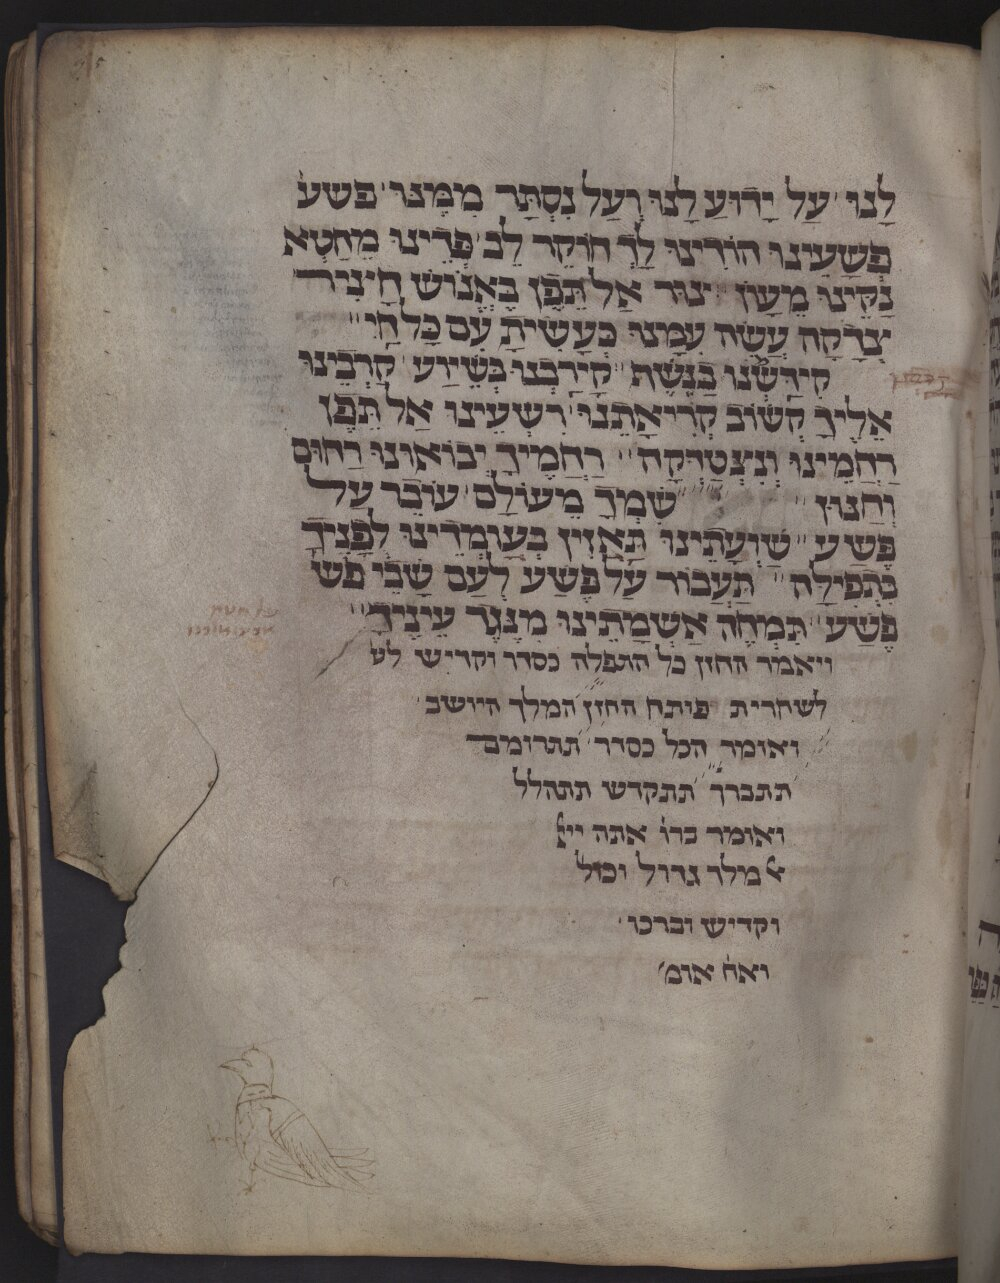 לָנוּ עַל יָדוּעַ לָנוּ וְעַל נִסְתָּר מִמֶּנּוּ פשע
פְּשָׁעֵינוּ הוֹרֵינוּ לָךְ חוֹקֵר לֵב פְּדֵינוּ מֵחֵטְא
נַקֵּינוּ מֵעָון יצור אַל תֵּפֶן בֶּאֱנוֹשׁ חָצִיר
צְדָקָה עֲשֵׂה עִמָּנוּ כְּעָשִׂיתָ עִם כָּל חָי
קִידַּשְׁנוּ קָירַבְנוּ בְּשִׁיוַע קָרְבֵינוּ
אֵלֶיךָ קְשׁוֹב קְרִיאָתֵנוּ רִשְׁעֵינוּ אַל תֵּפֶן
רַחֲמֵינוּ וְנִצְטַדְּקָה רַחֲמֶיךָ יְבוֹאוּנוּ רַחוּם
וְחַנּוּן שִׁמְךָ מֵעוֹלָם עוֹבֵר עַל
פֶּשַׁע שַׁוְעָתֵינוּ תַּאֲזִין בְּעָומְדֵינוּ לְפָנֶיךָ
בִּתְפִילָה תַּעֲבוֹר עַל פֶּשַׁע לְעַם שָׁבֵי פש
פֶשַׁע תִּמְחֶה אַשְׁמָתֵינוּ מִנֶּגֶד עֵינֶיךָ
ויאמר החזן כל התפלה כסדר וקדיש לש
לשחרית פותח החזן המלך היושב
ואומר הכל כסדר תתרומם
תתברך תתקדש תתהלל
ואומר ברו אתה ייא
א מלך גדול וכול
וקדיש וברכו
ואח אומ